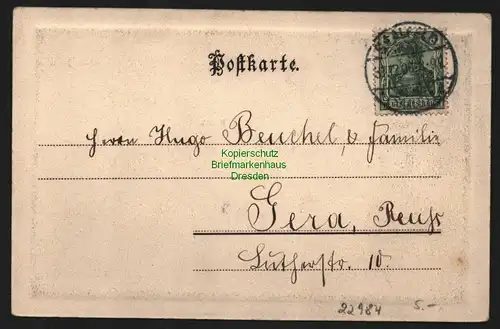 Postkarte.
Herrn Hugo Beuchel, & Familie
Kopierschutz
Briefmarkenhaus
Dresden
Gera, Reuss
Lutherstr. 10.
22984 5.-